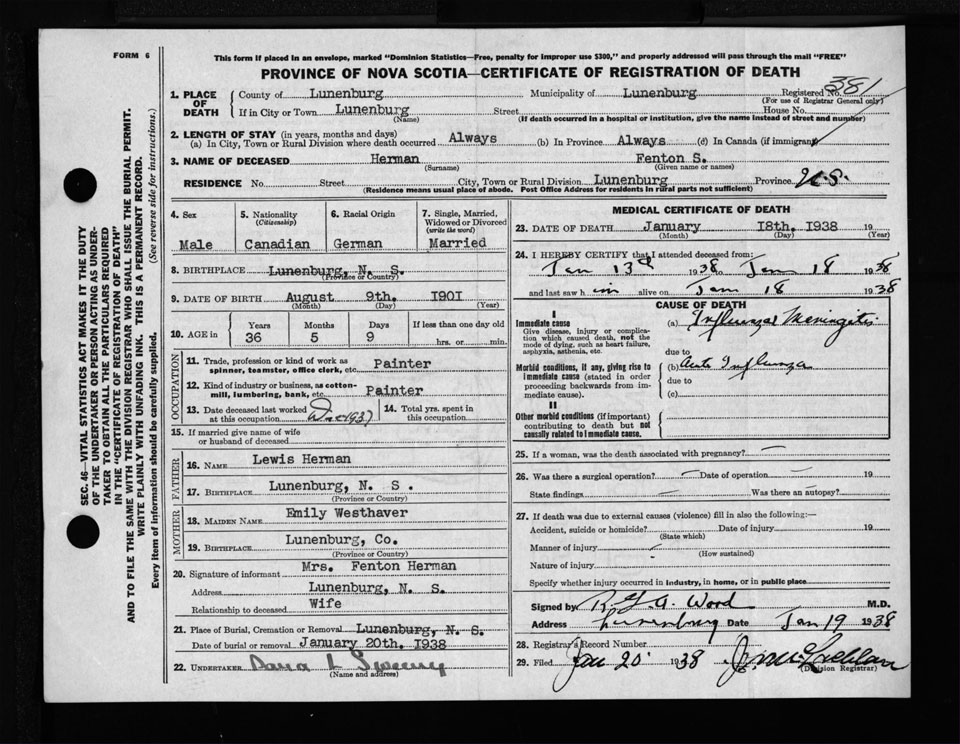 FORM 6
This form if placed in an envelope, marked "Dominion Statistics—Free, penalty for improper use $300," and properly addressed will pass through the mail "FREE"
PROVINCE OF NOVA SCOTIA—CERTIFICATE OF REGISTRATION OF DEATH
SEC. 46—VITAL STATISTICS ACT MAKES IT THE DUTY
OF THE UNDERTAKER OR PERSON ACTING AS UNDER-
TAKER TO OBTAIN ALL THE PARTICULARS REQUIRED
IN THE "CERTIFICATE OF REGISTRATION OF DEATH"
AND TO FILE THE SAME WITH THE DIVISION REGISTRAR WHO SHALL ISSUE THE BURIAL PERMIT.
WRITE PLAINLY WITH UNFADING INK. THIS IS A PERMANENT RECORD.
Every item of information should be carefully supplied. (See reverse side for instructions.)
1. PLACE OF DEATH
County of Lunenburg Municipality of Lunenburg Registered No. 381
(For use of Registrar General only)
If in City or Town Lunenburg Street House No.
(Name) (If death occurred in a hospital or institution, give the name instead of street and number)
2. LENGTH OF STAY (in years, months and days)
(a) In City, Town or Rural Division where death occurred Always (b) In Province Always (d) In Canada (if immigrant)
3. NAME OF DECEASED Herman Fenton S.
(Surname) (Given name or names)
RESIDENCE No. Street City, Town or Rural Division Lunenburg Province N.S.
(Residence means usual place of abode. Post Office Address for residents in rural parts not sufficient)
4. Sex
Male
5. Nationality
(Citizenship)
Canadian
6. Racial Origin
German
7. Single, Married,
Widowed or Divorced
(write the word)
Married
8. BIRTHPLACE Lunenburg, N. S.
(Province or Country)
9. DATE OF BIRTH August 9th. 1901
(Month) (Day) (Year)
10. AGE in
Years Months Days If less than one day old
36 5 9 hrs. or min.
OCCUPATION
11. Trade, profession or kind of work as
spinner, teamster, office clerk, etc. Painter
12. Kind of industry or business, as cotton-
mill, lumbering, bank, etc. Painter
13. Date deceased last worked
at this occupation Dec 1937
14. Total yrs. spent in
this occupation
15. If married give name of wife
or husband of deceased
FATHER
16. NAME Lewis Herman
17. BIRTHPLACE Lunenburg, N. S.
(Province or Country)
MOTHER
18. MAIDEN NAME Emily Westhaver
19. BIRTHPLACE Lunenburg, Co.
(Province or Country)
20. Signature of informant Mrs. Fenton Herman
Address Lunenburg, N. S.
Relationship to deceased Wife
21. Place of Burial, Cremation or Removal Lunenburg, N. S.
Date of burial or removal January 20th. 1938
22. UNDERTAKER Dana L Sweeny
(Name and address)
MEDICAL CERTIFICATE OF DEATH
23. DATE OF DEATH January 18th. 1938 19
(Month) (Day) (Year)
24. I HEREBY CERTIFY that I attended deceased from:
Jan 13 1938 to Jan 18 1938
and last saw h im alive on Jan 18 1938
CAUSE OF DEATH
I
Immediate cause
Give disease, injury or complica-
tion which caused death, not the
mode of dying, such as heart failure,
asphyxia, asthenia, etc.
(a) Influenzal Meningitis
due to
Morbid conditions, if any, giving rise to
immediate cause (stated in order
proceeding backwards from im-
mediate cause).
(b) Acute Influenza
due to
(c)
II
Other morbid conditions (if important)
contributing to death but not
causally related to immediate cause.
25. If a woman, was the death associated with pregnancy?
26. Was there a surgical operation? Date of operation 19
State findings Was there an autopsy?
27. If death was due to external causes (violence) fill in also the following:—
Accident, suicide or homicide? Date of injury 19
(State which)
Manner of injury
(How sustained)
Nature of injury
Specify whether injury occurred in industry, in home, or in public place
Signed by R. G. A. Wood M.D.
Address Lunenburg Date Jan 19 1938
28. Registrar's Record Number
29. Filed Jan 20 1938
(Division Registrar)